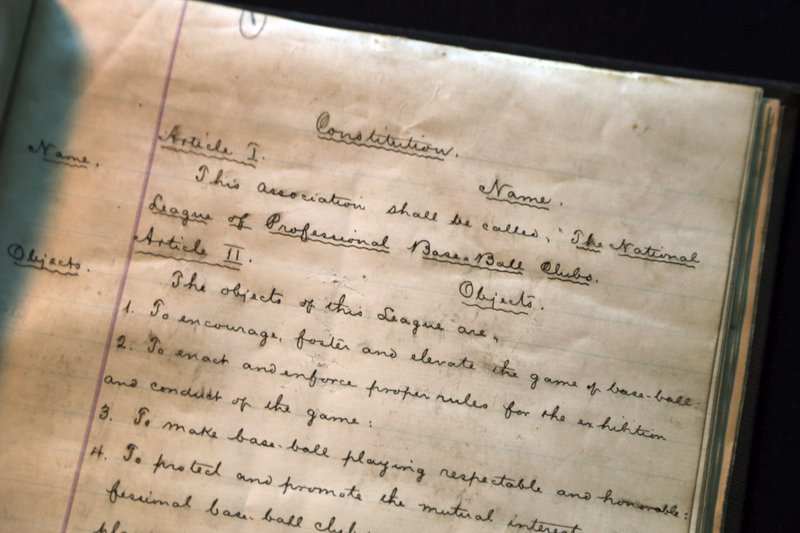 1
Constitution.
Name. Article I. Name.
This association shall be called, "The National
League of Professional Base-Ball Clubs.
Objects. Article II. Objects.
The objects of this League are,
1. To encourage, foster and elevate the game of base-ball:
2. To enact and enforce proper rules for the exhibition
and conduct of the game:
3. To make base-ball playing respectable and honorable:
4. To protect and promote the mutual interest
fessional base-ball club